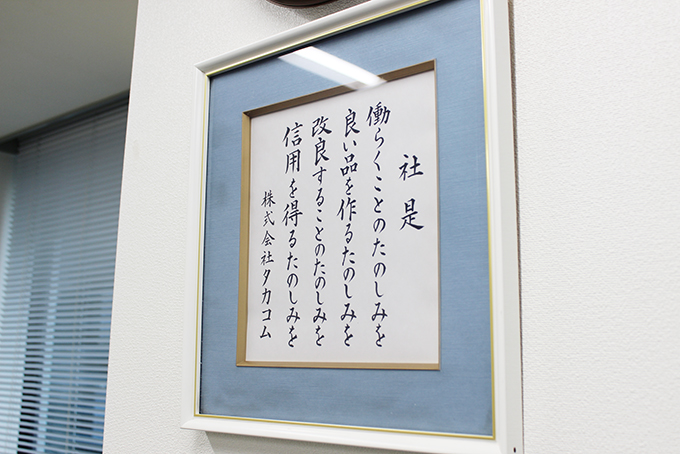 社是
働らくことのたのしみを
良い品を作るたのしみを
改良することのたのしみを
信用を得るたのしみを
株式会社タカコム